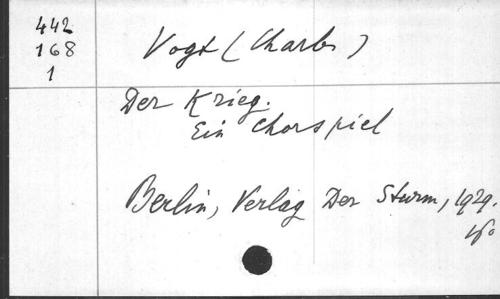 442
168
1
Vogt (Charles)
Der Krieg.
Ein Chorspiel
Berlin, Verlag Der Sturm, 1929.